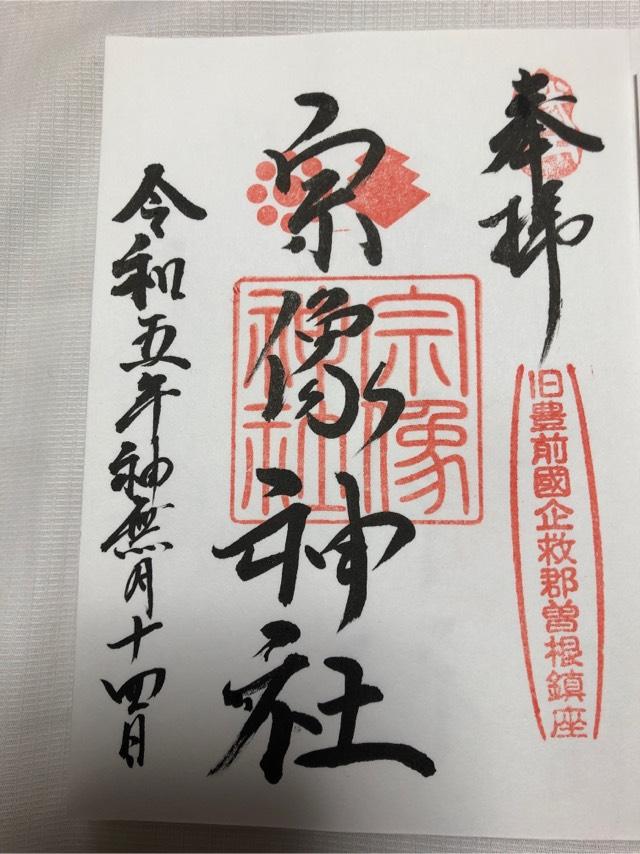 奉拝
旧豊前國企救郡曽根鎮座
宗像神社
宗像神社
令和五年神無月十四日